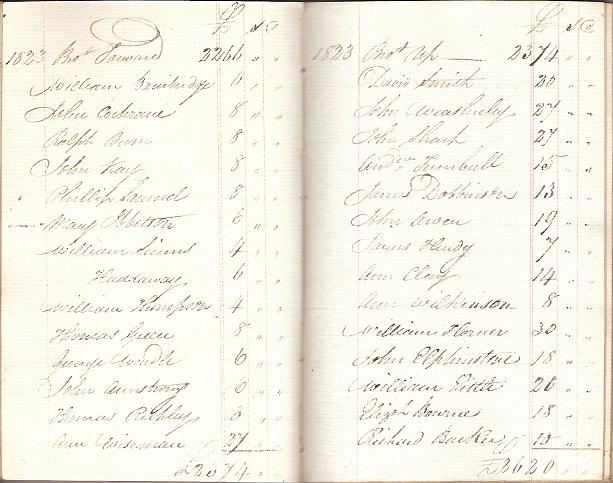 £ s d
1823 Brot Forward 2266 " "
William Bainbridge 6 " "
John Cochrane 8 " "
Ralph Burn 8 " "
John Kay 8 " "
Phillip 8 " "
Mary Ibbitson 6 " "
William 4 " "
Haddaway 6 " "
William Thompson 4 " "
Thomas Green 8 " "
George 6 " "
John Armstrong 6 " "
Thomas " "
Ann Wiseman 27 " "
£2374 " "
£ s d
1823 Brot Up 2374 " "
David Smith 20 " "
John Weatherly 27 " "
John Sharp 27 " "
Andrew Turnbull 15 " "
James Dobbinson 13 " "
John Owen 19 " "
James Hendy 7 " "
Ann Clay 14 " "
Ann Wilkinson 8 " "
William Horner 30 " "
John Elphinstone 18 " "
William Little 20 " "
Elizth Bourne 18 " "
Richard Barker " "
£2620 " "